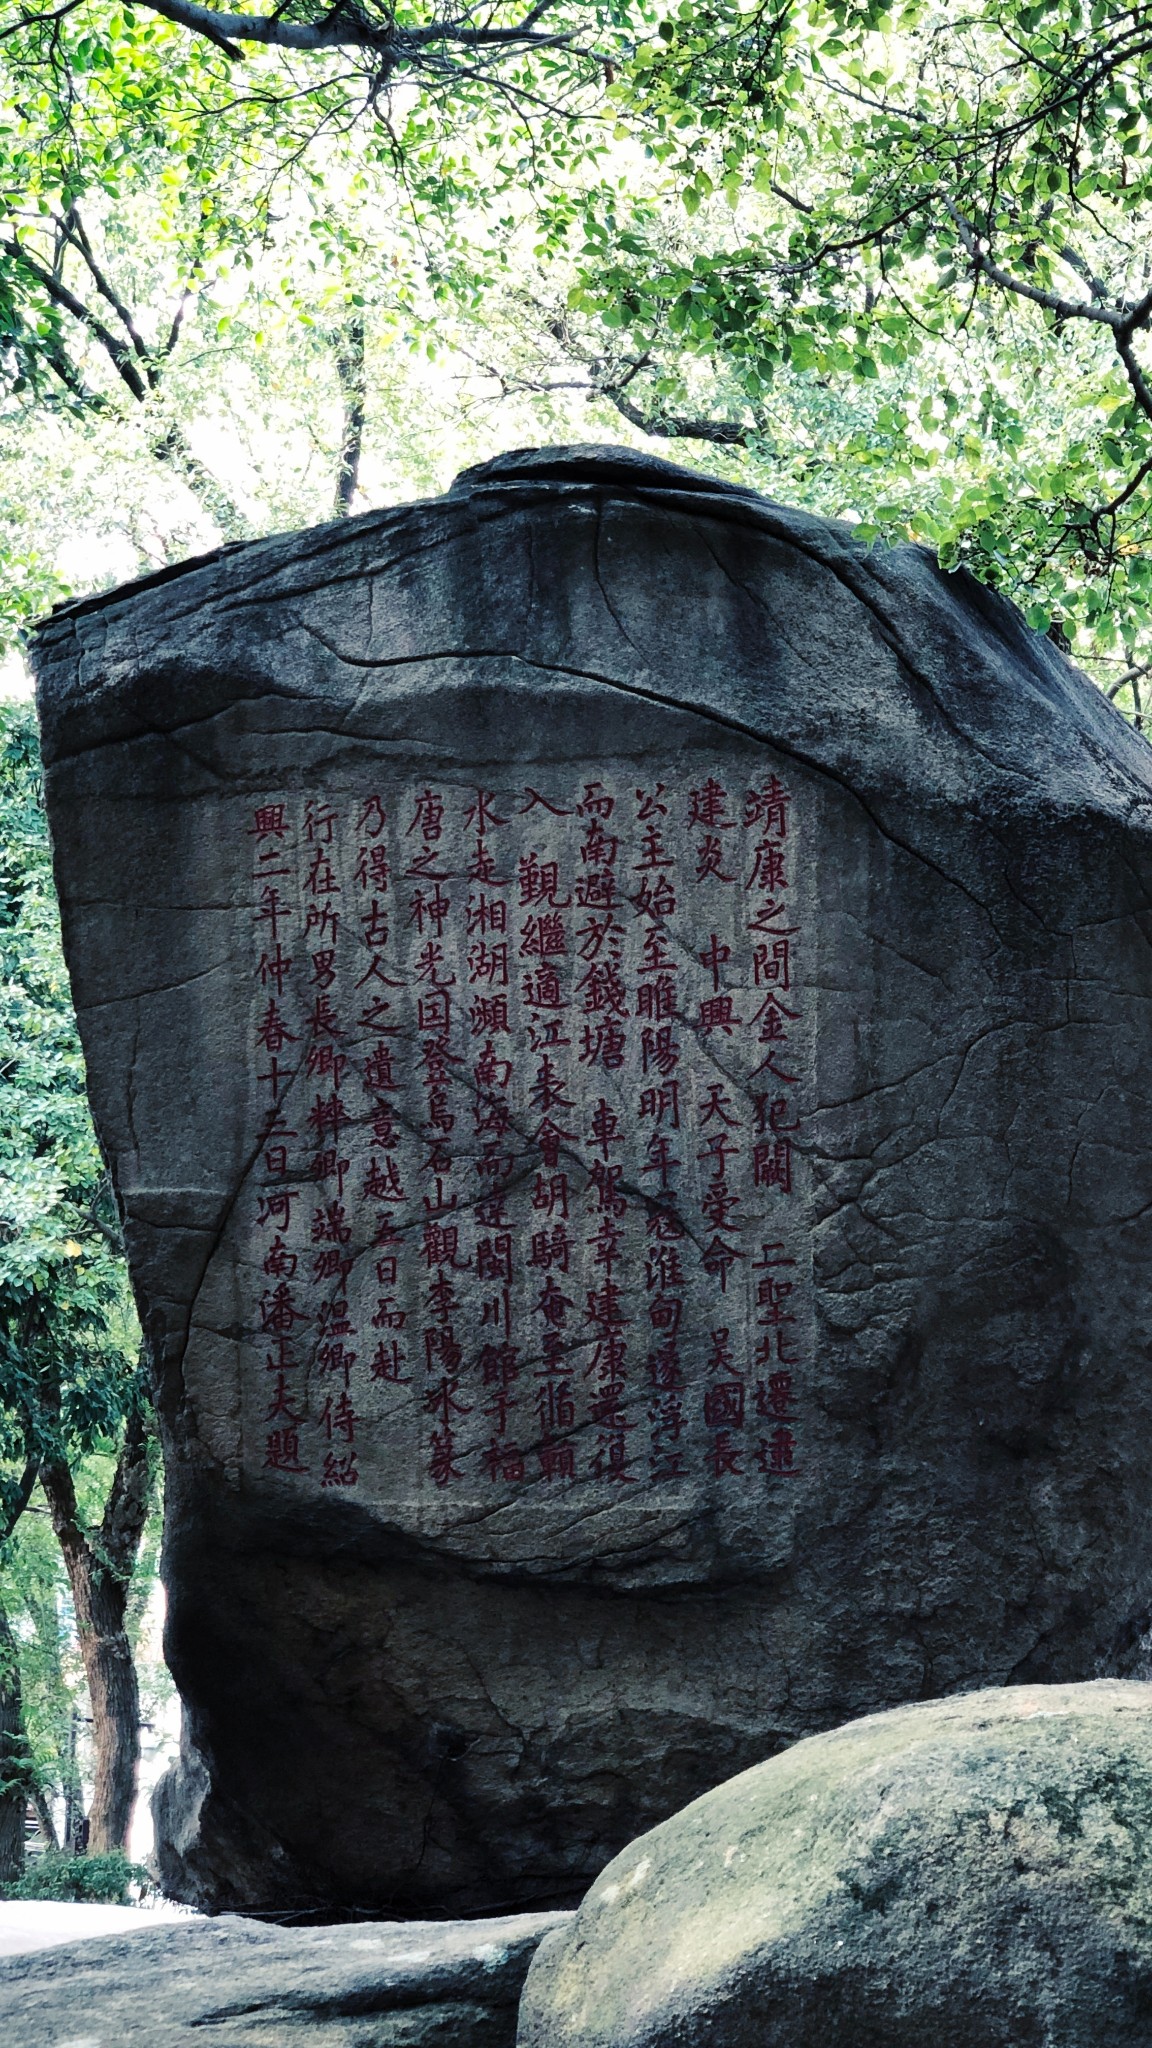 靖康之間金人犯闕　二聖北遷逮
建炎　中興　天子受命　吴國長
公主始至睢陽明年寇淮甸遂浮江
而南避於錢塘　車駕幸建康還復
入　覲繼適江表會胡騎奄至循贛
水走湘湖瀕南海而達閩川館于福
唐之神光因登烏石山觀李陽冰篆
乃得古人之遺意越五日而赴
行在所男長卿粹卿端卿温卿侍紹
興二年仲春十三日河南潘正夫題